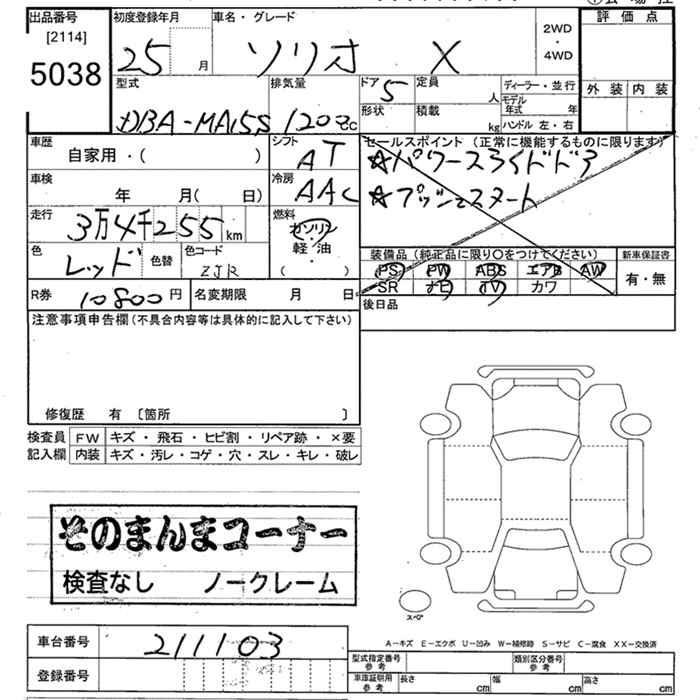 出品番号 初度登録年月 車名・グレード 評価点
[2114] 2WD
5038 25 月 ソリオ X ・
4WD
型式 排気量 ドア 5 定員 人 ディーラー・並行 外装 内装
DBA-MA15S 1200cc 形状 積載 kg モデル年式 年
ハンドル 左・右
車歴 自家用・( ) シフト AT セールスポイント (正常に機能するものに限ります)
☆パワースライドドア
車検 年 月( 日) 冷房 AAC ☆プッシュスタート
走行 3万4千255km 燃料 ガソリン
軽・油
・
( )
色 レッド 色替 色コード ZJR 装備品(純正品に限り〇をつけてください) 新車保証書
PS PW ABS エアB AW 有・無
SR ナビ TV カワ
R券 10800円 名変期限 月 日 後日品
注意事項申告欄(不具合内容等は具体的に記入して下さい)
修復歴 有 〔箇所 〕
検査員 FW キズ・飛石・ヒビ割・リペア跡・×要
記入欄 内装 キズ・汚レ・コゲ・穴・スレ・キレ・破レ
そのまんまコーナー
検査なし ノークレーム
スペア
A-キズ E-エクボ U-凹み W-補修跡 S-サビ C-腐食 XX-交換済
車台番号 211103
登録番号
型式指定番号 参考 類別区分番号 参考
車庫証明用 参考 長さ cm 幅 cm 高さ cm